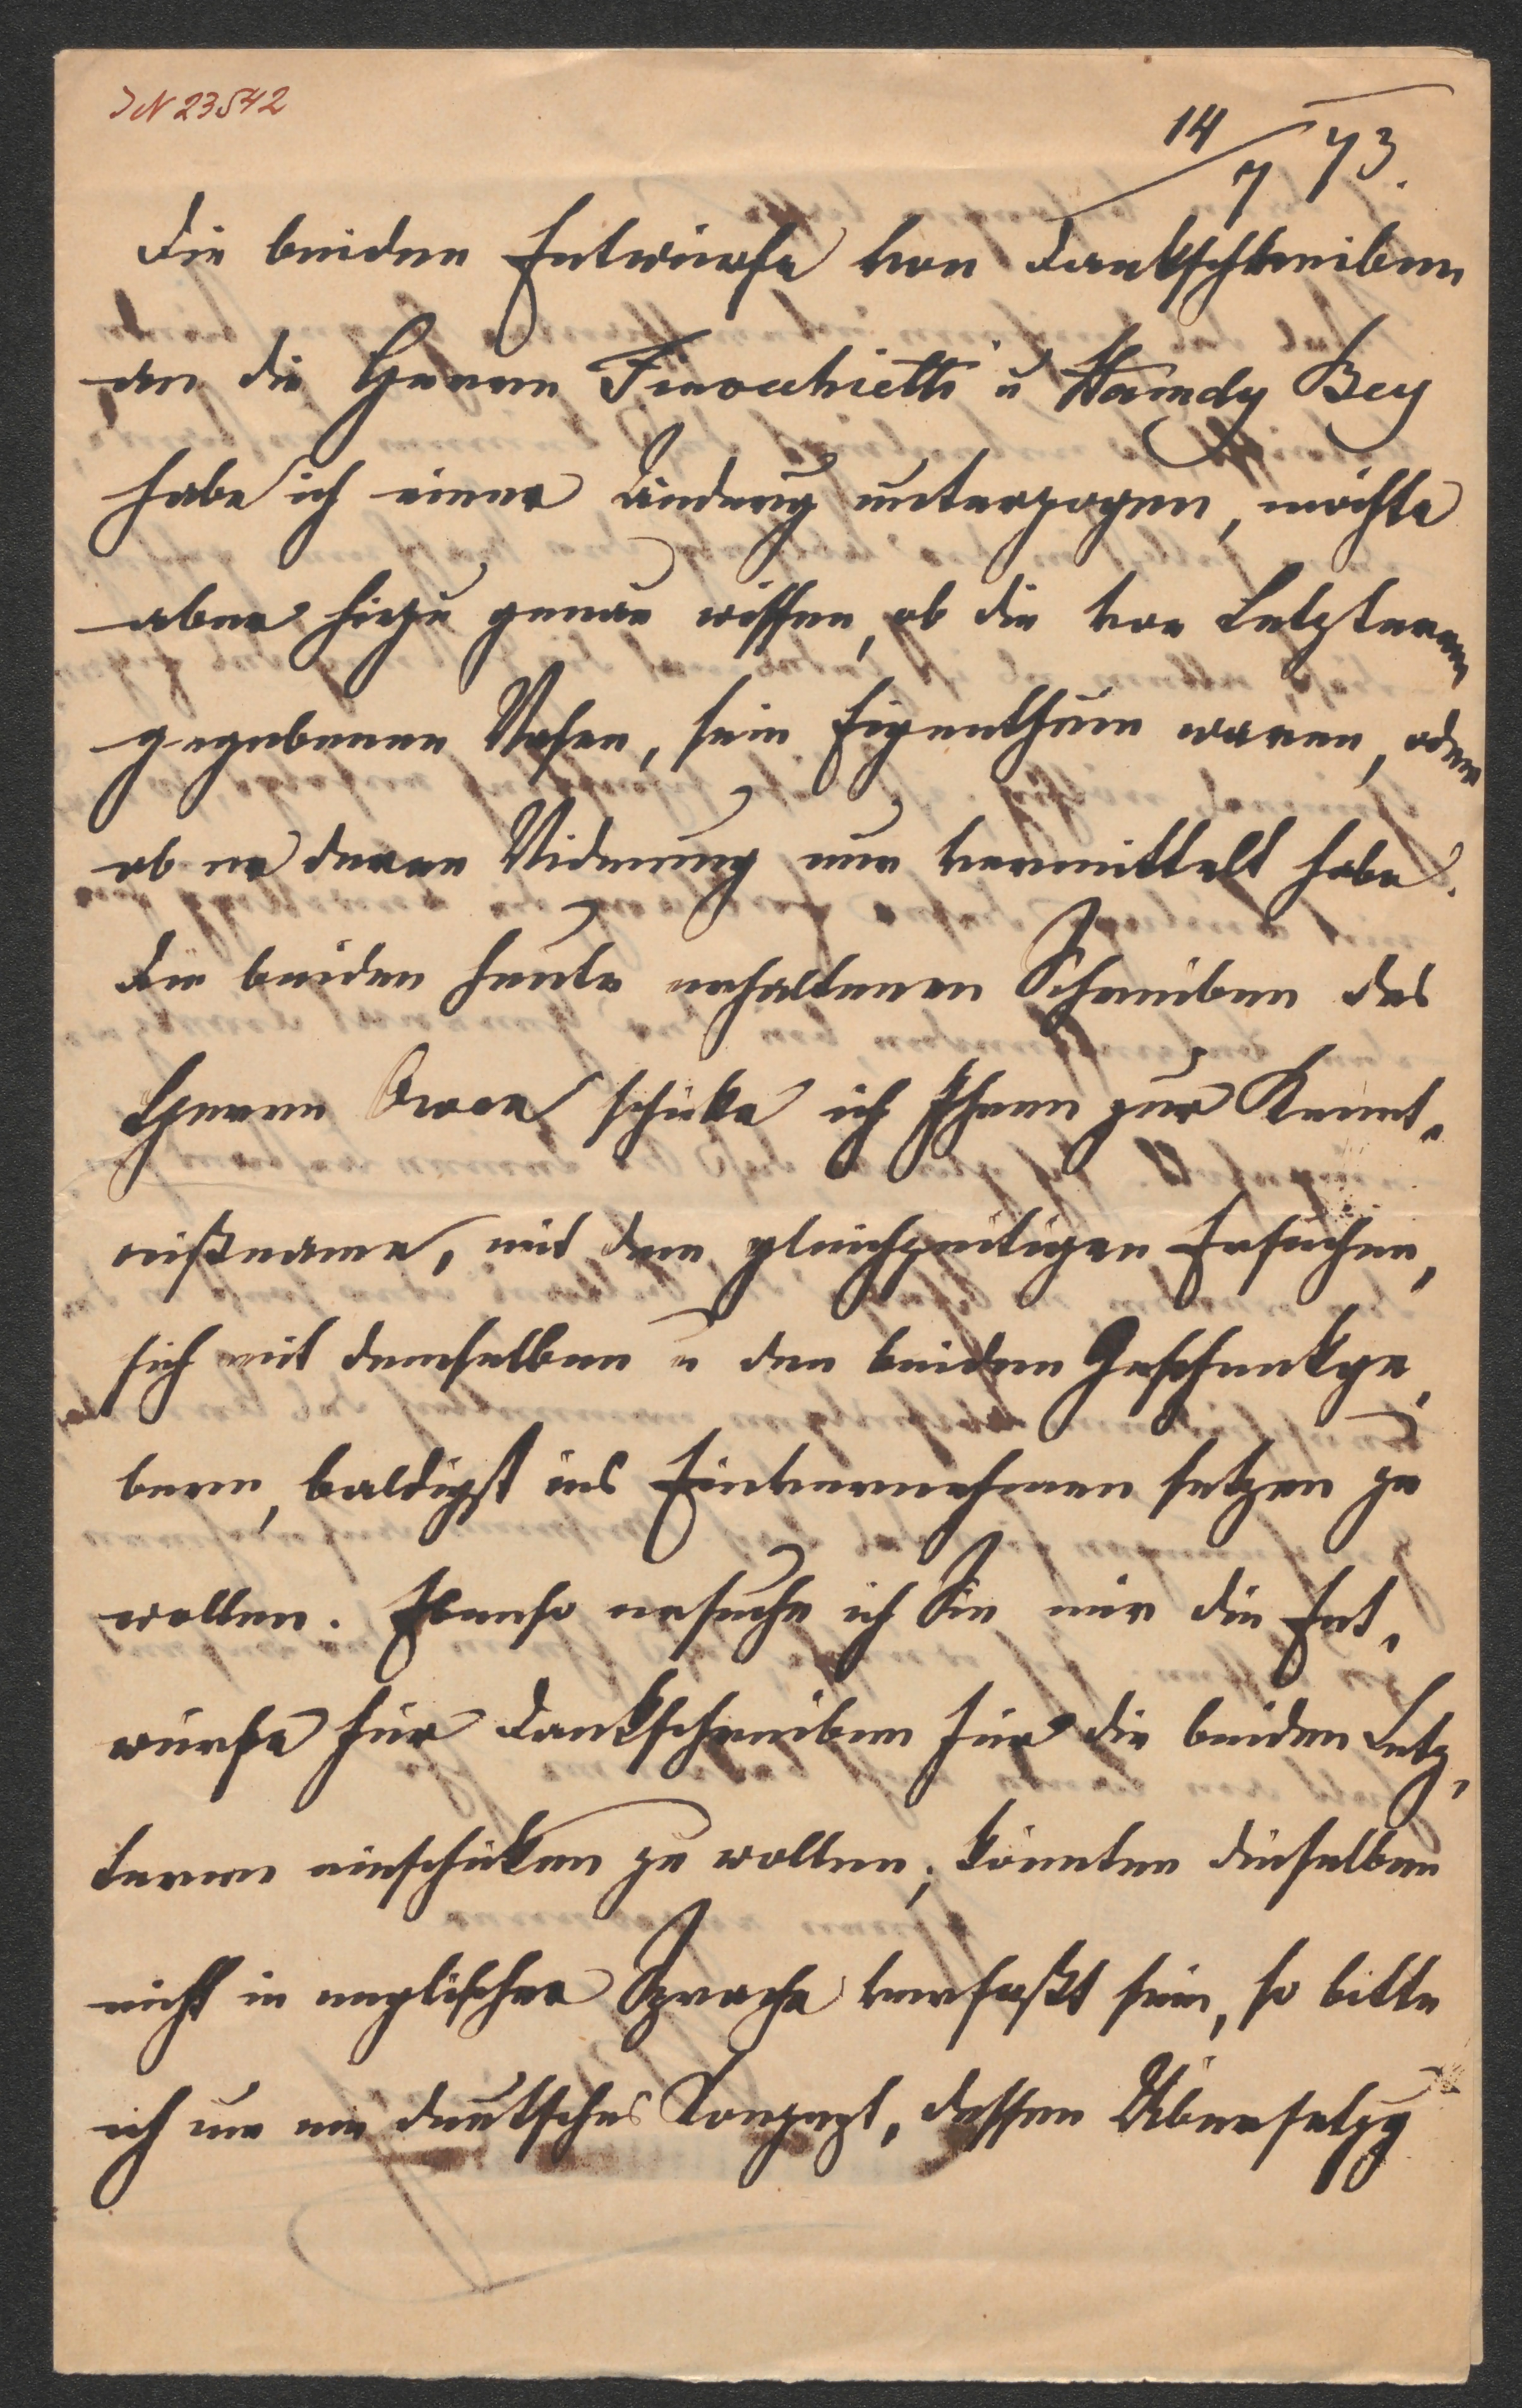 IN 23542
14/7 73.
Die beiden Entwürfe von Dankschreiben
an die Herren Finocchietti u Hamdy Bey
habe ich einer Änderung unterzogen, möchte
aber hiezu genau wissen, ob die von Letzterem
gegebenen Vasen, sein Eigenthum waren, oder
ob er deren Widmung nur vermittelt habe.
Die beiden heute erhaltenen Schreiben des
Herrn Owen schicke ich Ihnen zur Kennt-
nißname, mit dem gleichzeitigen Ersuchen,
sich mit demselben u den beiden Geschenkge-
bern, baldigst ins Einvernehmen setzen zu
wollen. Ebenso ersuche ich Sie mir die Ent-
würfe für Dankschreiben für die beiden Letz-
teren einschicken zu wollen; könnten dieselben
nicht in englischer Sprache verfaßt sein, so bitte
ich um ein deutsches Conzept, dessen Übersetzg